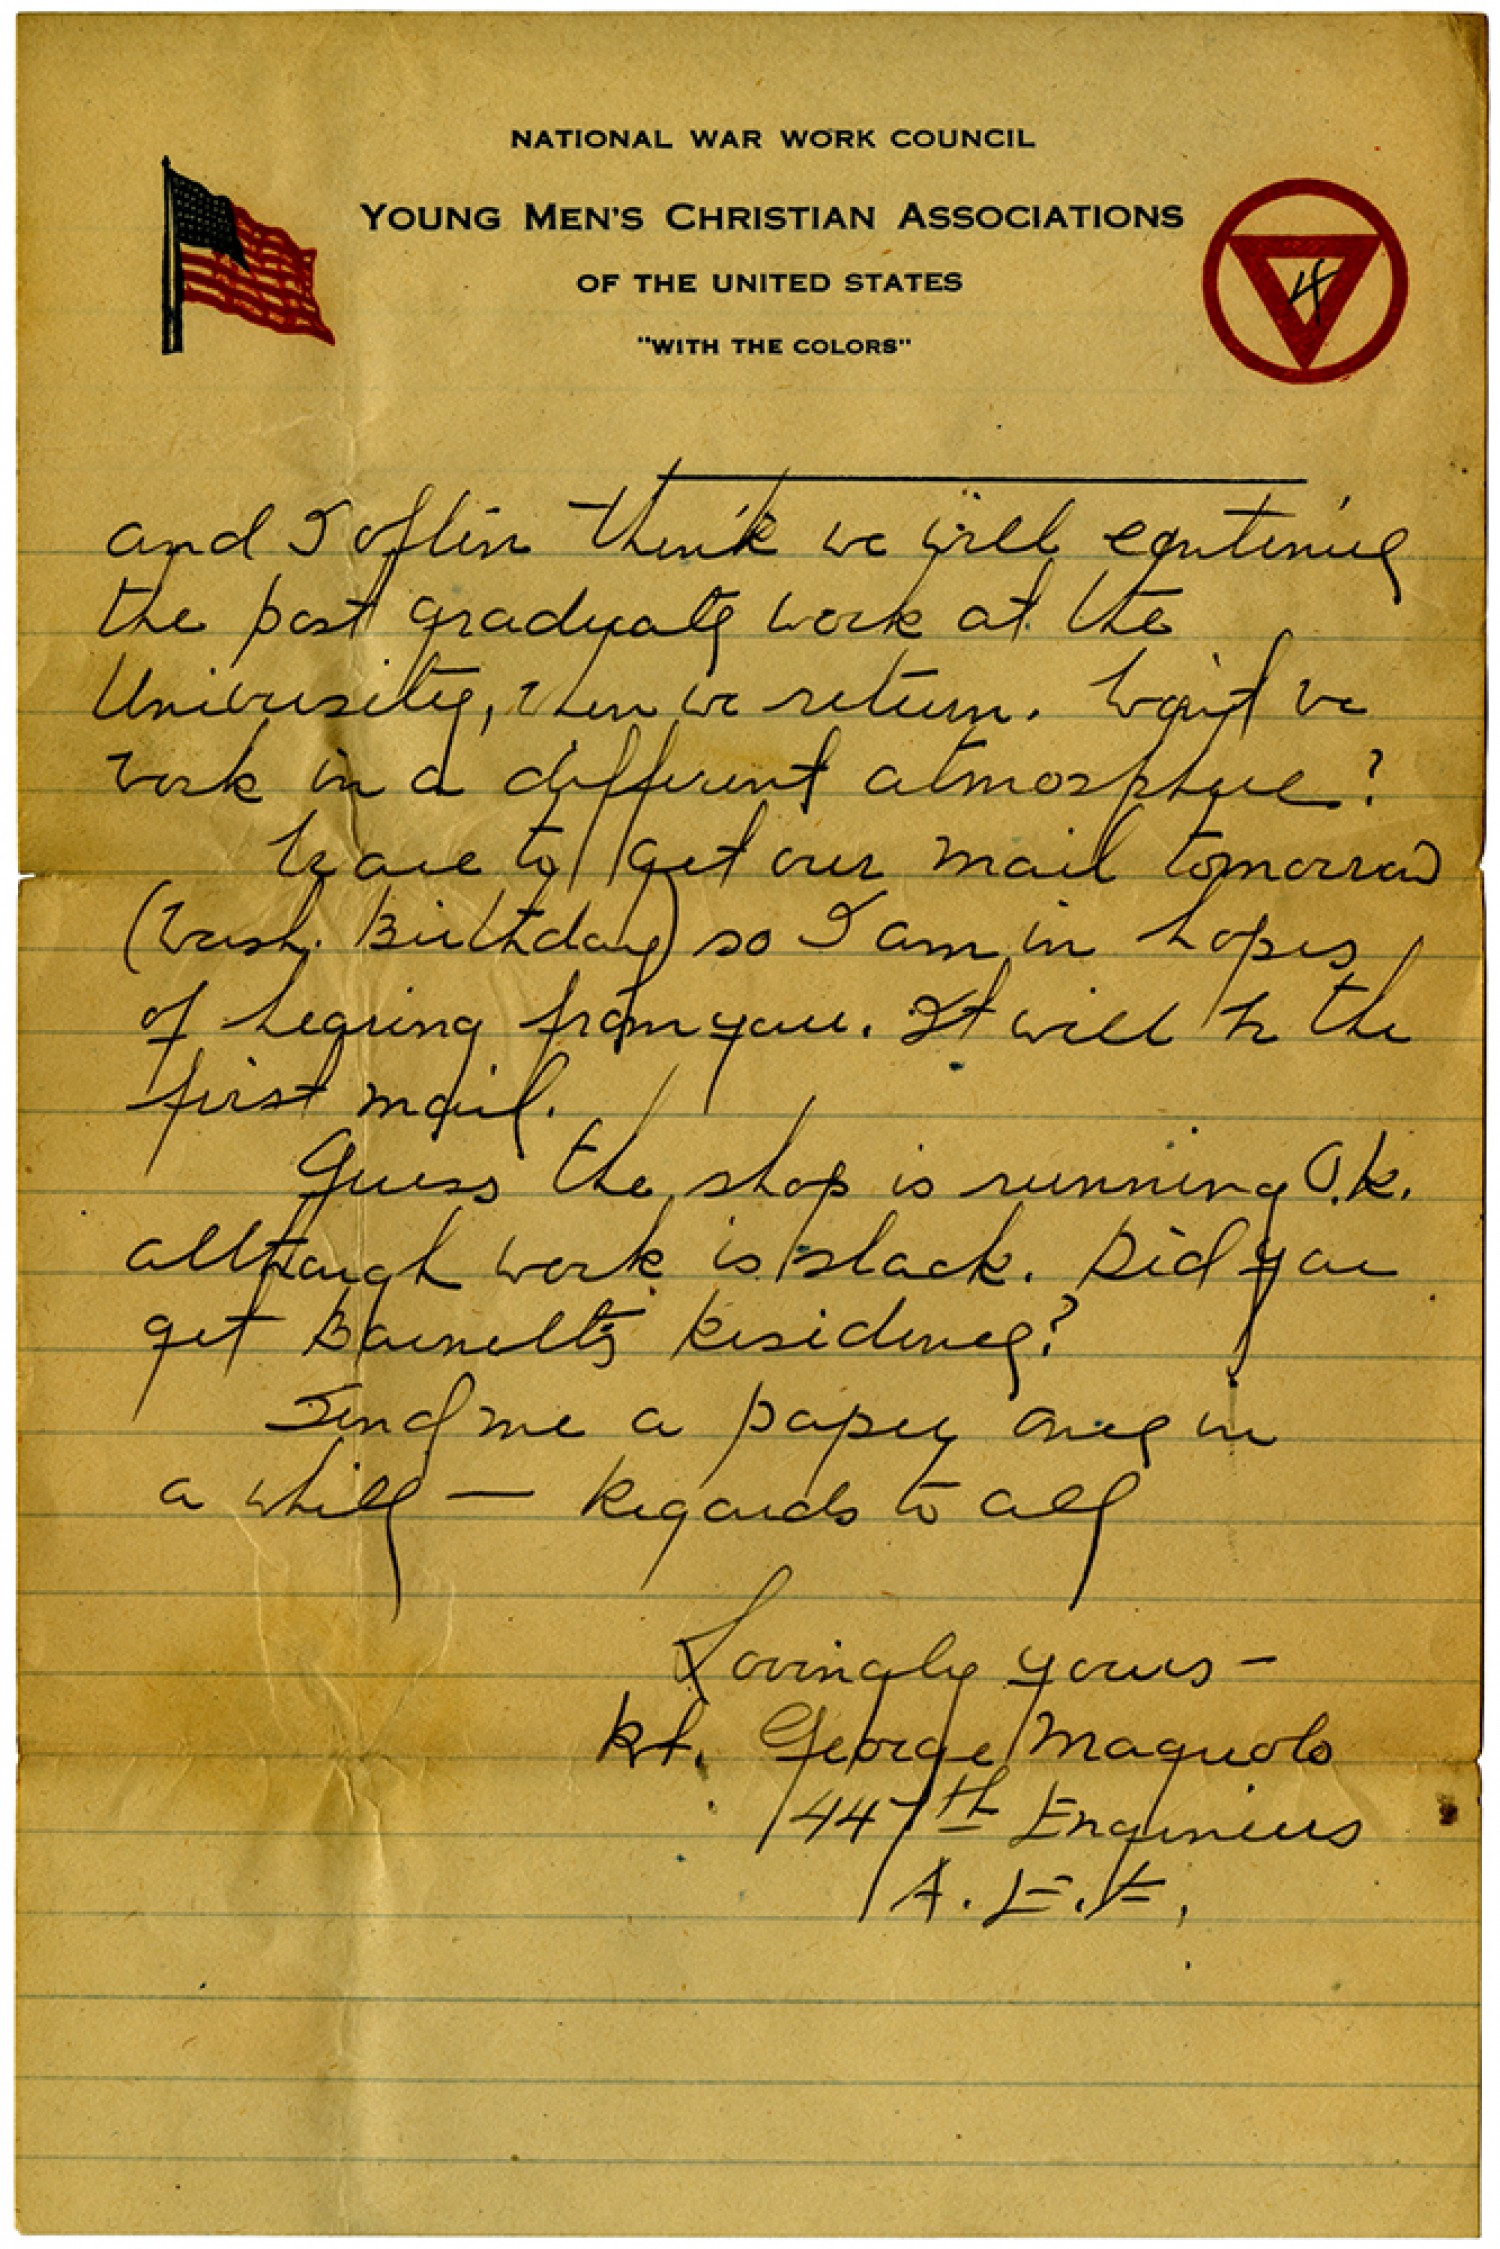 NATIONAL WAR WORK COUNCIL
YOUNG MEN'S CHRISTIAN ASSOCIATIONS
OF THE UNITED STATES
"WITH THE COLORS"
4
and I often think we will continue
the post graduate work at the
University, when we return. Won't we
work in a different atmosphere?
to get our mail tomorrow
(Wash. Birthday) so I am in hopes
of hearing from you. It will be the
first mail.
Guess the shop is running O.K.
although work is slack. Did you
get Barnett's Residence?
Send me a paper once in
a while — Regards to all
Lovingly yours —
George Magnolo
447th Engineers
A. E. F.